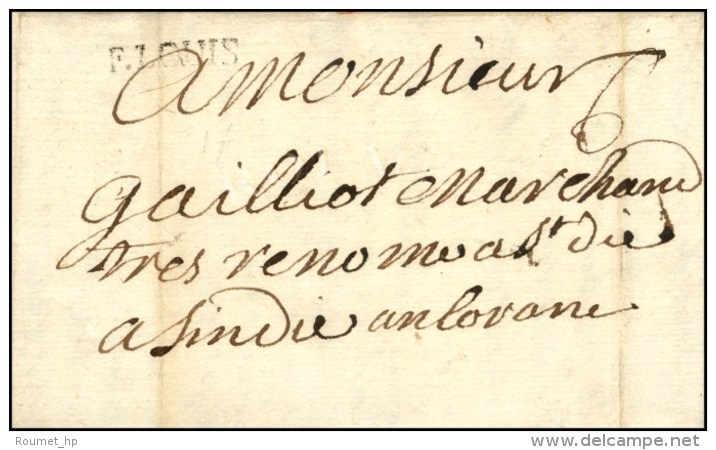 F.LOUIS
A Monsieur
gailliot Marchand
tres renome a st die
a sindie an lorane
Roumet_hp
delcampe.net